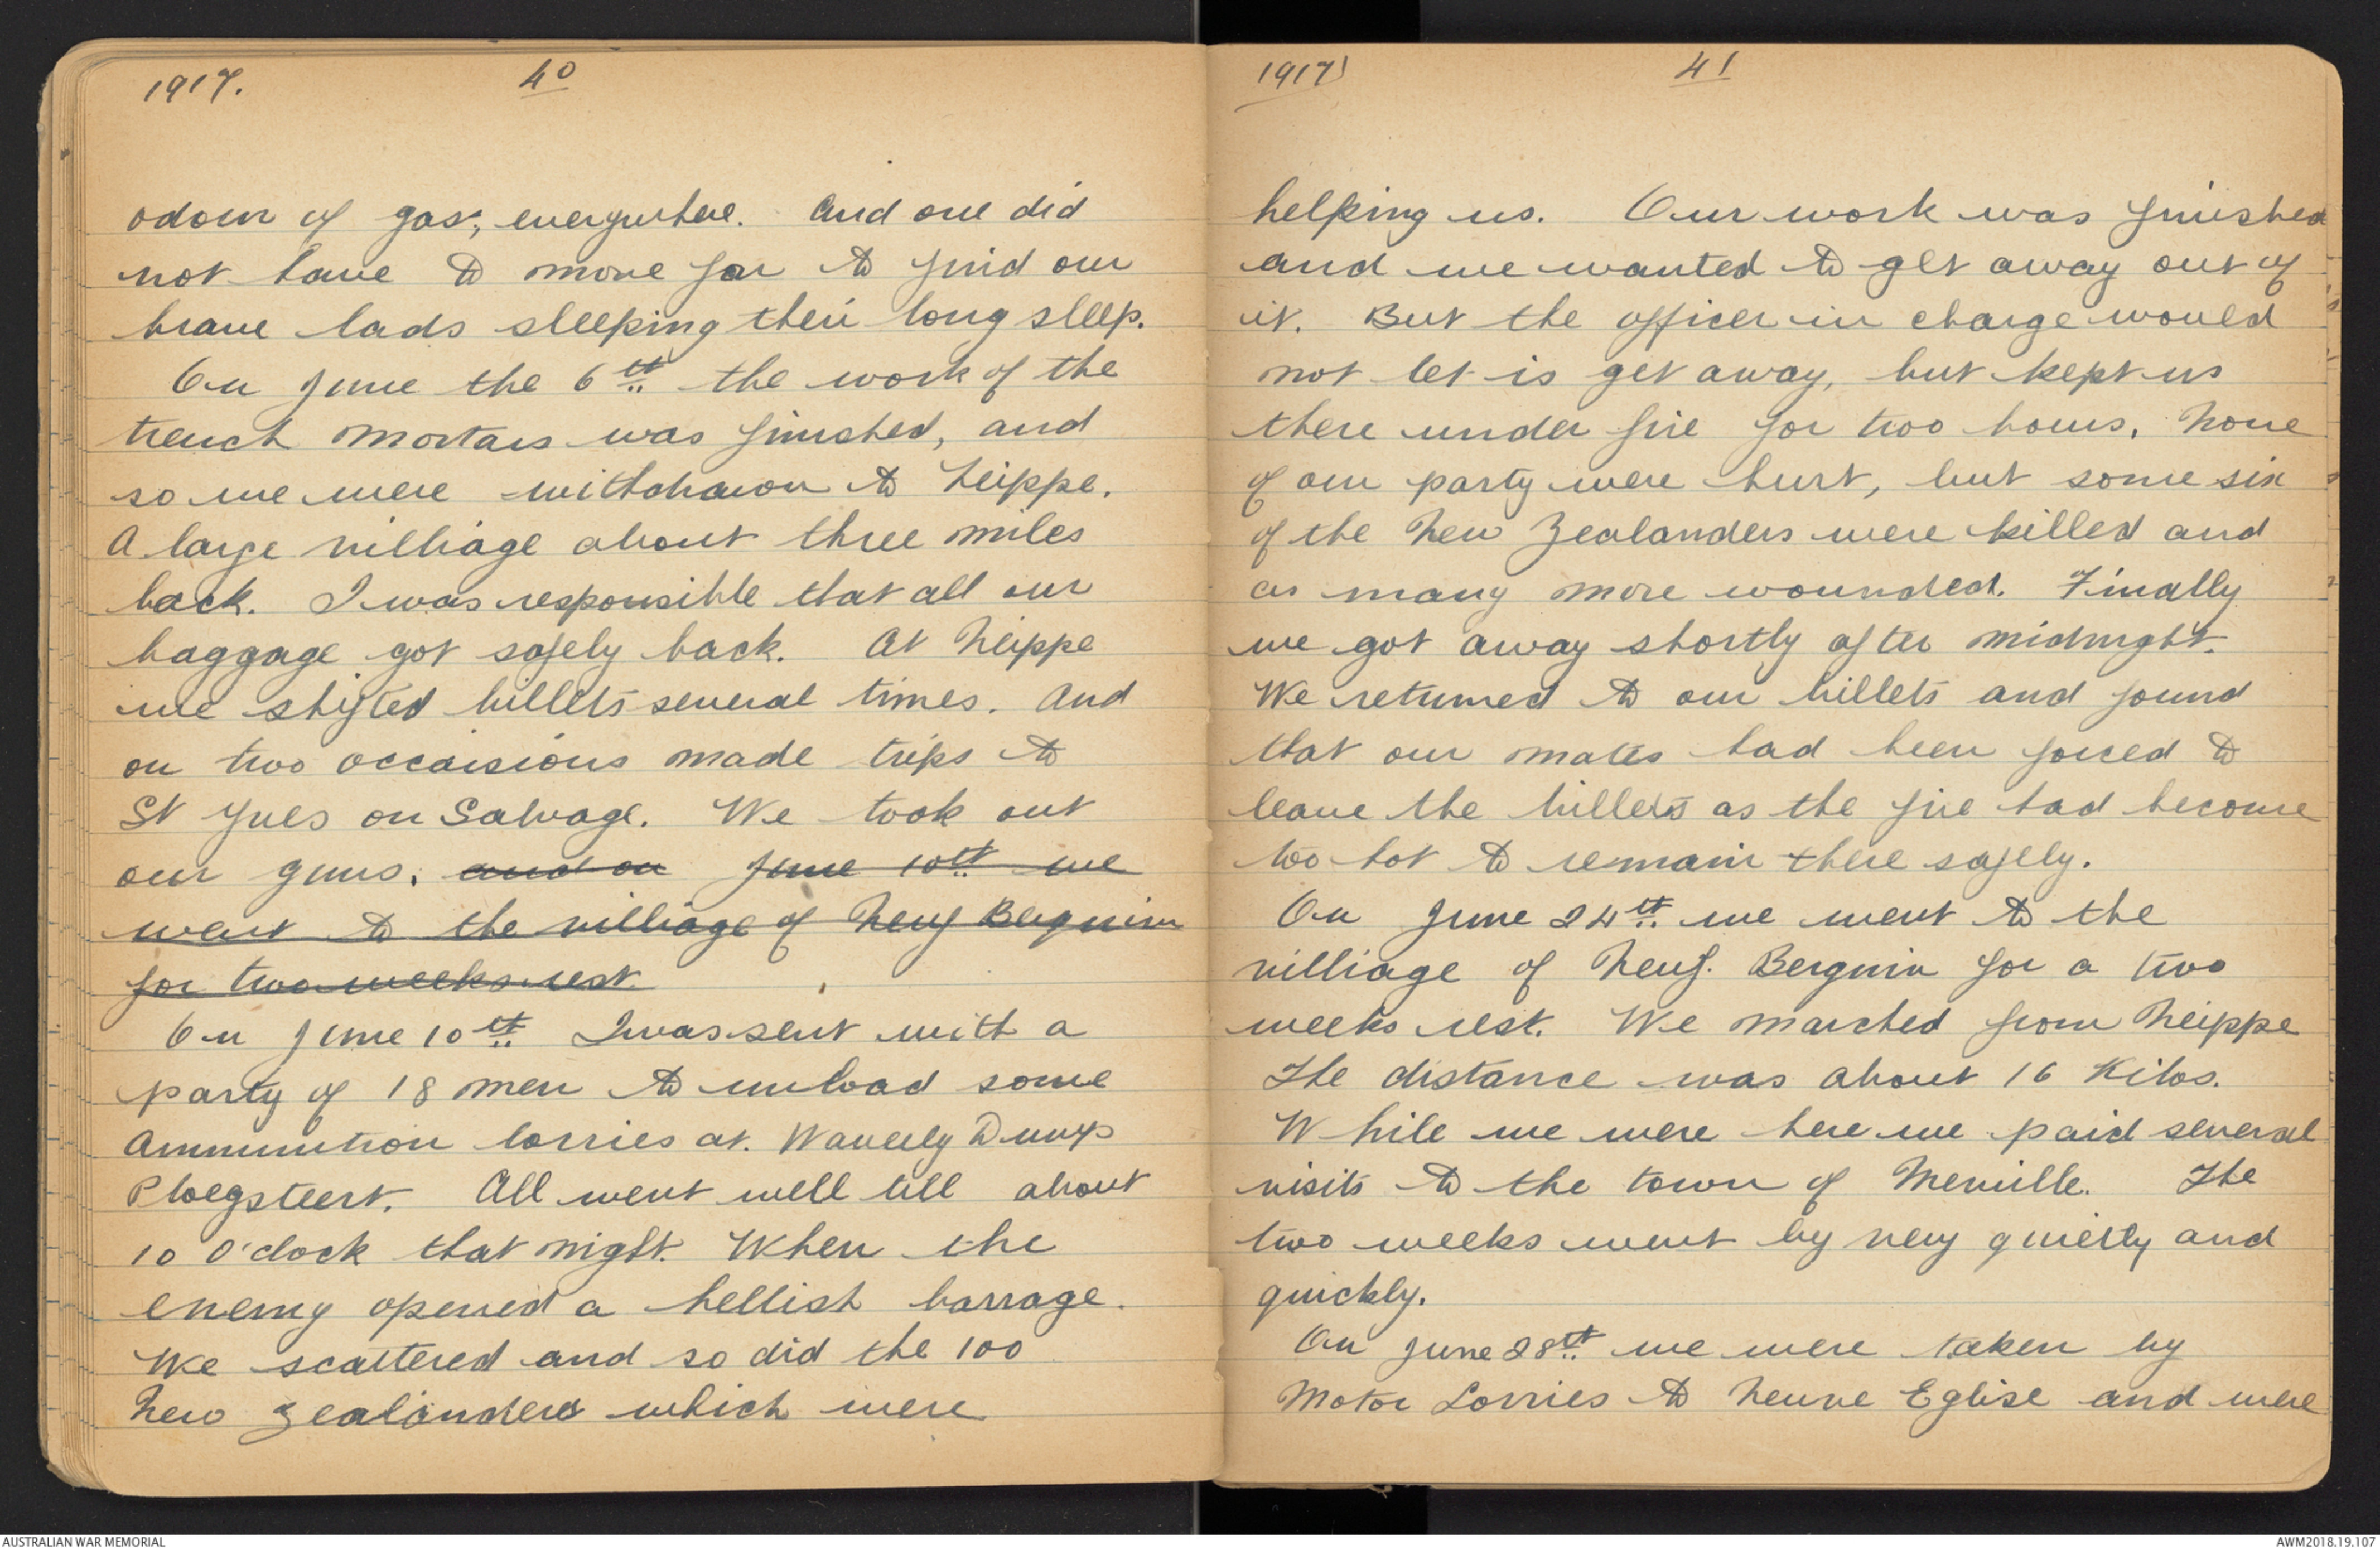 1917.
40
odour of gas, everywhere. And one did
not have to move far to find our
brave lads sleeping their long sleep.
On June the 6th the work of the
trench mortars was finished, and
so we were withdrawn to Neippe.
A large villiage about three miles
back. I was responsible that all our
baggage got safely back. At Neippe
we shifted billets several times. And
on two occaisions made trips to
St Yves on Salvage. We took out
our guns. and on June 10th we
went to the villiage of Neuf Berquin
for two weeks rest.
On June 10th I was sent with a
party of 18 men to unload some
Ammunition lorries at. Waverly Dump
Ploegsteert. All went well till about
10 O'clock that night. When the
enemy opened a hellish barrage.
We scattered and so did the 100
New Zealanders which were
1917
41
helping us. Our work was finished
and we wanted to get away out of
it. But the officer in charge would
not let is get away, but kept us
there under fire for two hours. None
of our party were hurt, but some six
of the New Zealanders were killed and
as many more wounded. Finally
we got away shortly after midnight.
We returned to our billets and found
that our mates had been forced to
leave the billets as the fire had become
too hot to remain there safely.
On June 24th we went to the
villiage of Neuf. Berquin for a two
weeks rest. We marched from Neippe
The distance was about 16 Kilos.
While we were here we paid several
visits to the town of Merville. The
two weeks went by very quietly and
quickly.
On June 28th we were taken by
Motor Lorries to Neuve Eglise and were
AUSTRALIAN WAR MEMORIAL
AWM2018.19.107